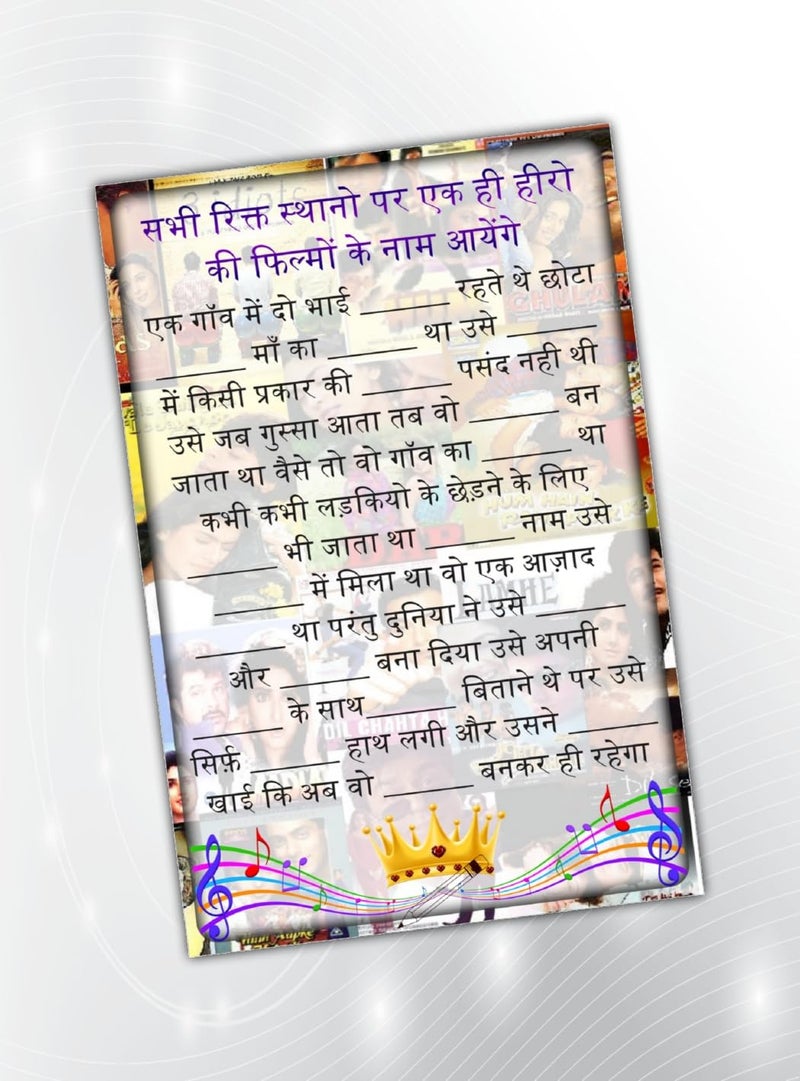 सभी रिक्त स्थानो पर एक ही हीरो
की फिल्मों के नाम आयेंगे
एक गॉव में दो भाई ______ रहते थे छोटा
______ माँ का ______ था उसे ______
में किसी प्रकार की ______ पसंद नही थी
उसे जब गुस्सा आता तब वो ______ बन
जाता था वैसे तो वो गॉव का ______ था
कभी कभी लड़कियो के छेड़ने के लिए
______ भी जाता था ______ नाम उसे
______ में मिला था वो एक आज़ाद
______ था परंतु दुनिया ने उसे ______
और ______ बना दिया उसे अपनी
______ के साथ ______ बिताने थे पर उसे
सिर्फ़ ______ हाथ लगी और उसने ______
खाई कि अब वो ______ बनकर ही रहेगा
3 idiots
GHULA
LAMHE
DIL CHAHTA H